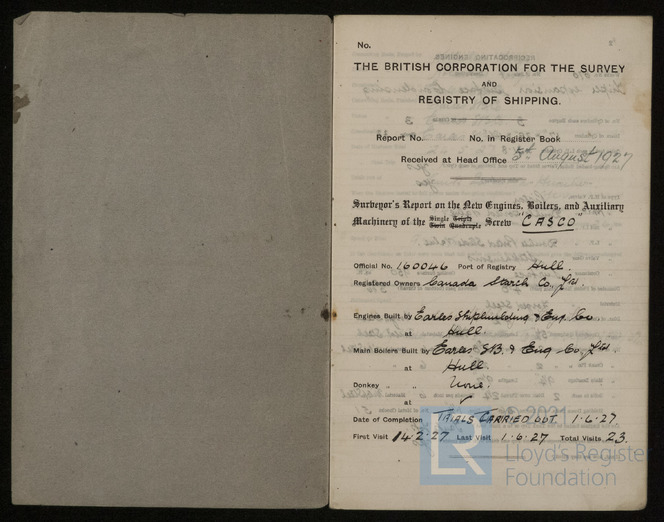 No.
THE BRITISH CORPORATION FOR THE SURVEY
AND
REGISTRY OF SHIPPING.
Report No. No. in Register Book
Received at Head Office 5th August 1927
Surveyor's Report on the New Engines, Boilers, and Auxiliary
Machinery of the Single Triple Twin Quadruple Screw "CASCO"
Official No. 160046 Port of Registry Hull.
Registered Owners Canada Starch Co. Ltd.
Engines Built by Earles Shipbuilding & Eng. Co.
at Hull.
Main Boilers Built by Earles S.B. & Eng Co. Ltd.
at Hull
Donkey " " None.
at
Date of Completion TRIALS CARRIED OUT. 1.6.27
First Visit 14.2.27 Last Visit 1.6.27 Total Visits 23.
LR
Lloyd's Register
Foundation